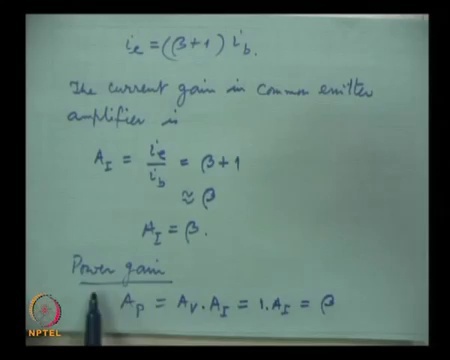 ie = (β+1) ib.
The current gain in common emitter
amplifier is
AI = ie/ib = β+1
≈ β
AI = β.
Power gain
Ap = Av.AI = 1.AI = β
NPTEL